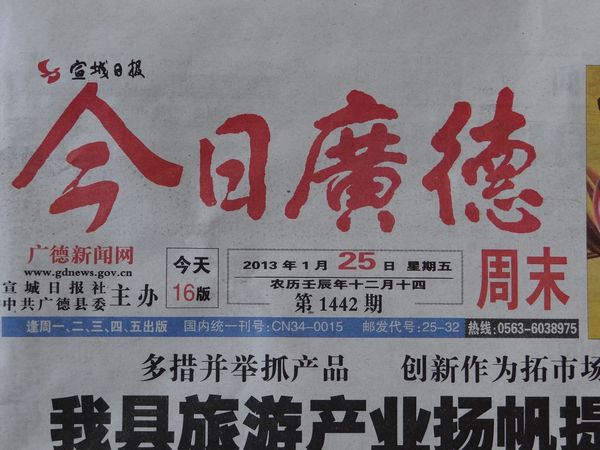 宣城日报
今日廣德
广德新闻网
www.gdnews.gov.cn
宣城日报社
中共广德县委
主办
今天
16版
2013年1月25日 星期五
农历壬辰年十二月十四
第1442期
周末
逢周一、二、三、四、五出版 国内统一刊号:CN34-0015 邮发代号:25-32 热线:0563-6038975
多措并举抓产品 创新作为拓市场
我县旅游产业扬帆提